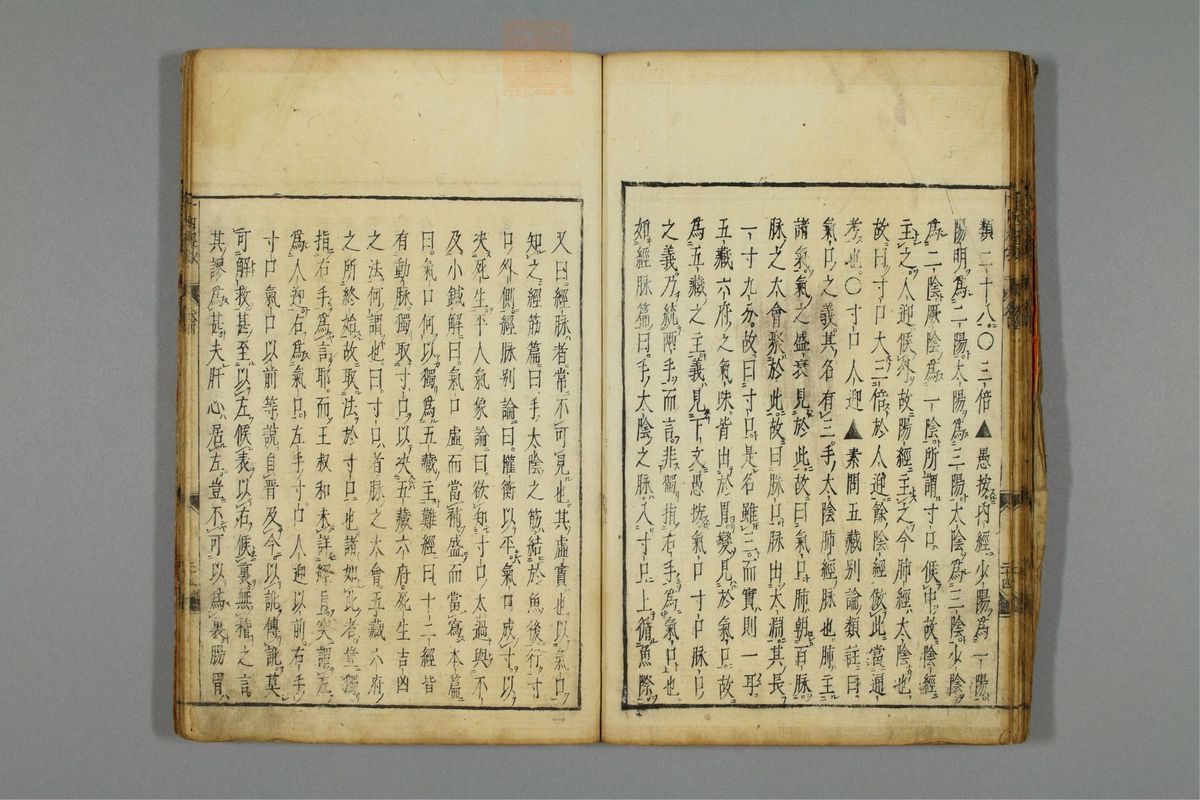 類二十八〇三倍▲愚按內經少陽爲一陽
陽明爲二陽太陽爲三陽太陰爲三陰少陰
爲二陰厥陰爲一陰所謂寸口候中故陰經
主之人迎候外故陽經主之今肺經太陰也
故曰寸口大三倍於人迎餘陰經倣此當通
考也〇寸口人迎▲素問五藏別論類註曰
氣口之義其名有三手太陰肺經脉也肺主
諸氣氣之盛衰見於此故曰氣口肺朝百脉
脉之大會聚於此故曰脉口脉出太淵其長
一寸九分故曰寸口是名雖三而實則一耳
五藏六府之氣味皆出於胃變見於氣口故
爲五藏之主義見下文愚按氣口寸口脉口
之義乃統兩手而言非獨指右手爲氣口也
如經脉篇曰手太陰之脉入寸口上循魚際
又曰經脉者常不可見也其虛實也以氣口
知之經筋篇曰手太陰之筋結於魚後行寸
口外側經脉別論曰權衡以平氣口成寸以
决死生平人氣象論曰欲知寸口太過與不
及小鍼解曰氣口虛而當補盛而當寫本篇
曰氣口何以獨爲五藏主難經曰十二經皆
有動脉獨取寸口以决五藏六府死生吉凶
之法何謂也曰寸口者脉之大會五藏六府
之所終始故取法於寸口也諸如此者豈獨
指右手爲言耶而王叔和未詳經旨突謂左
爲人迎右爲氣口左手寸口人迎以前右手
寸口氣口以前等說自晋及今以訛傳訛莫
可解救甚至以左候表以右候裏無稽之言
其謬爲甚夫肝心居左豈不可以爲裏腸胃